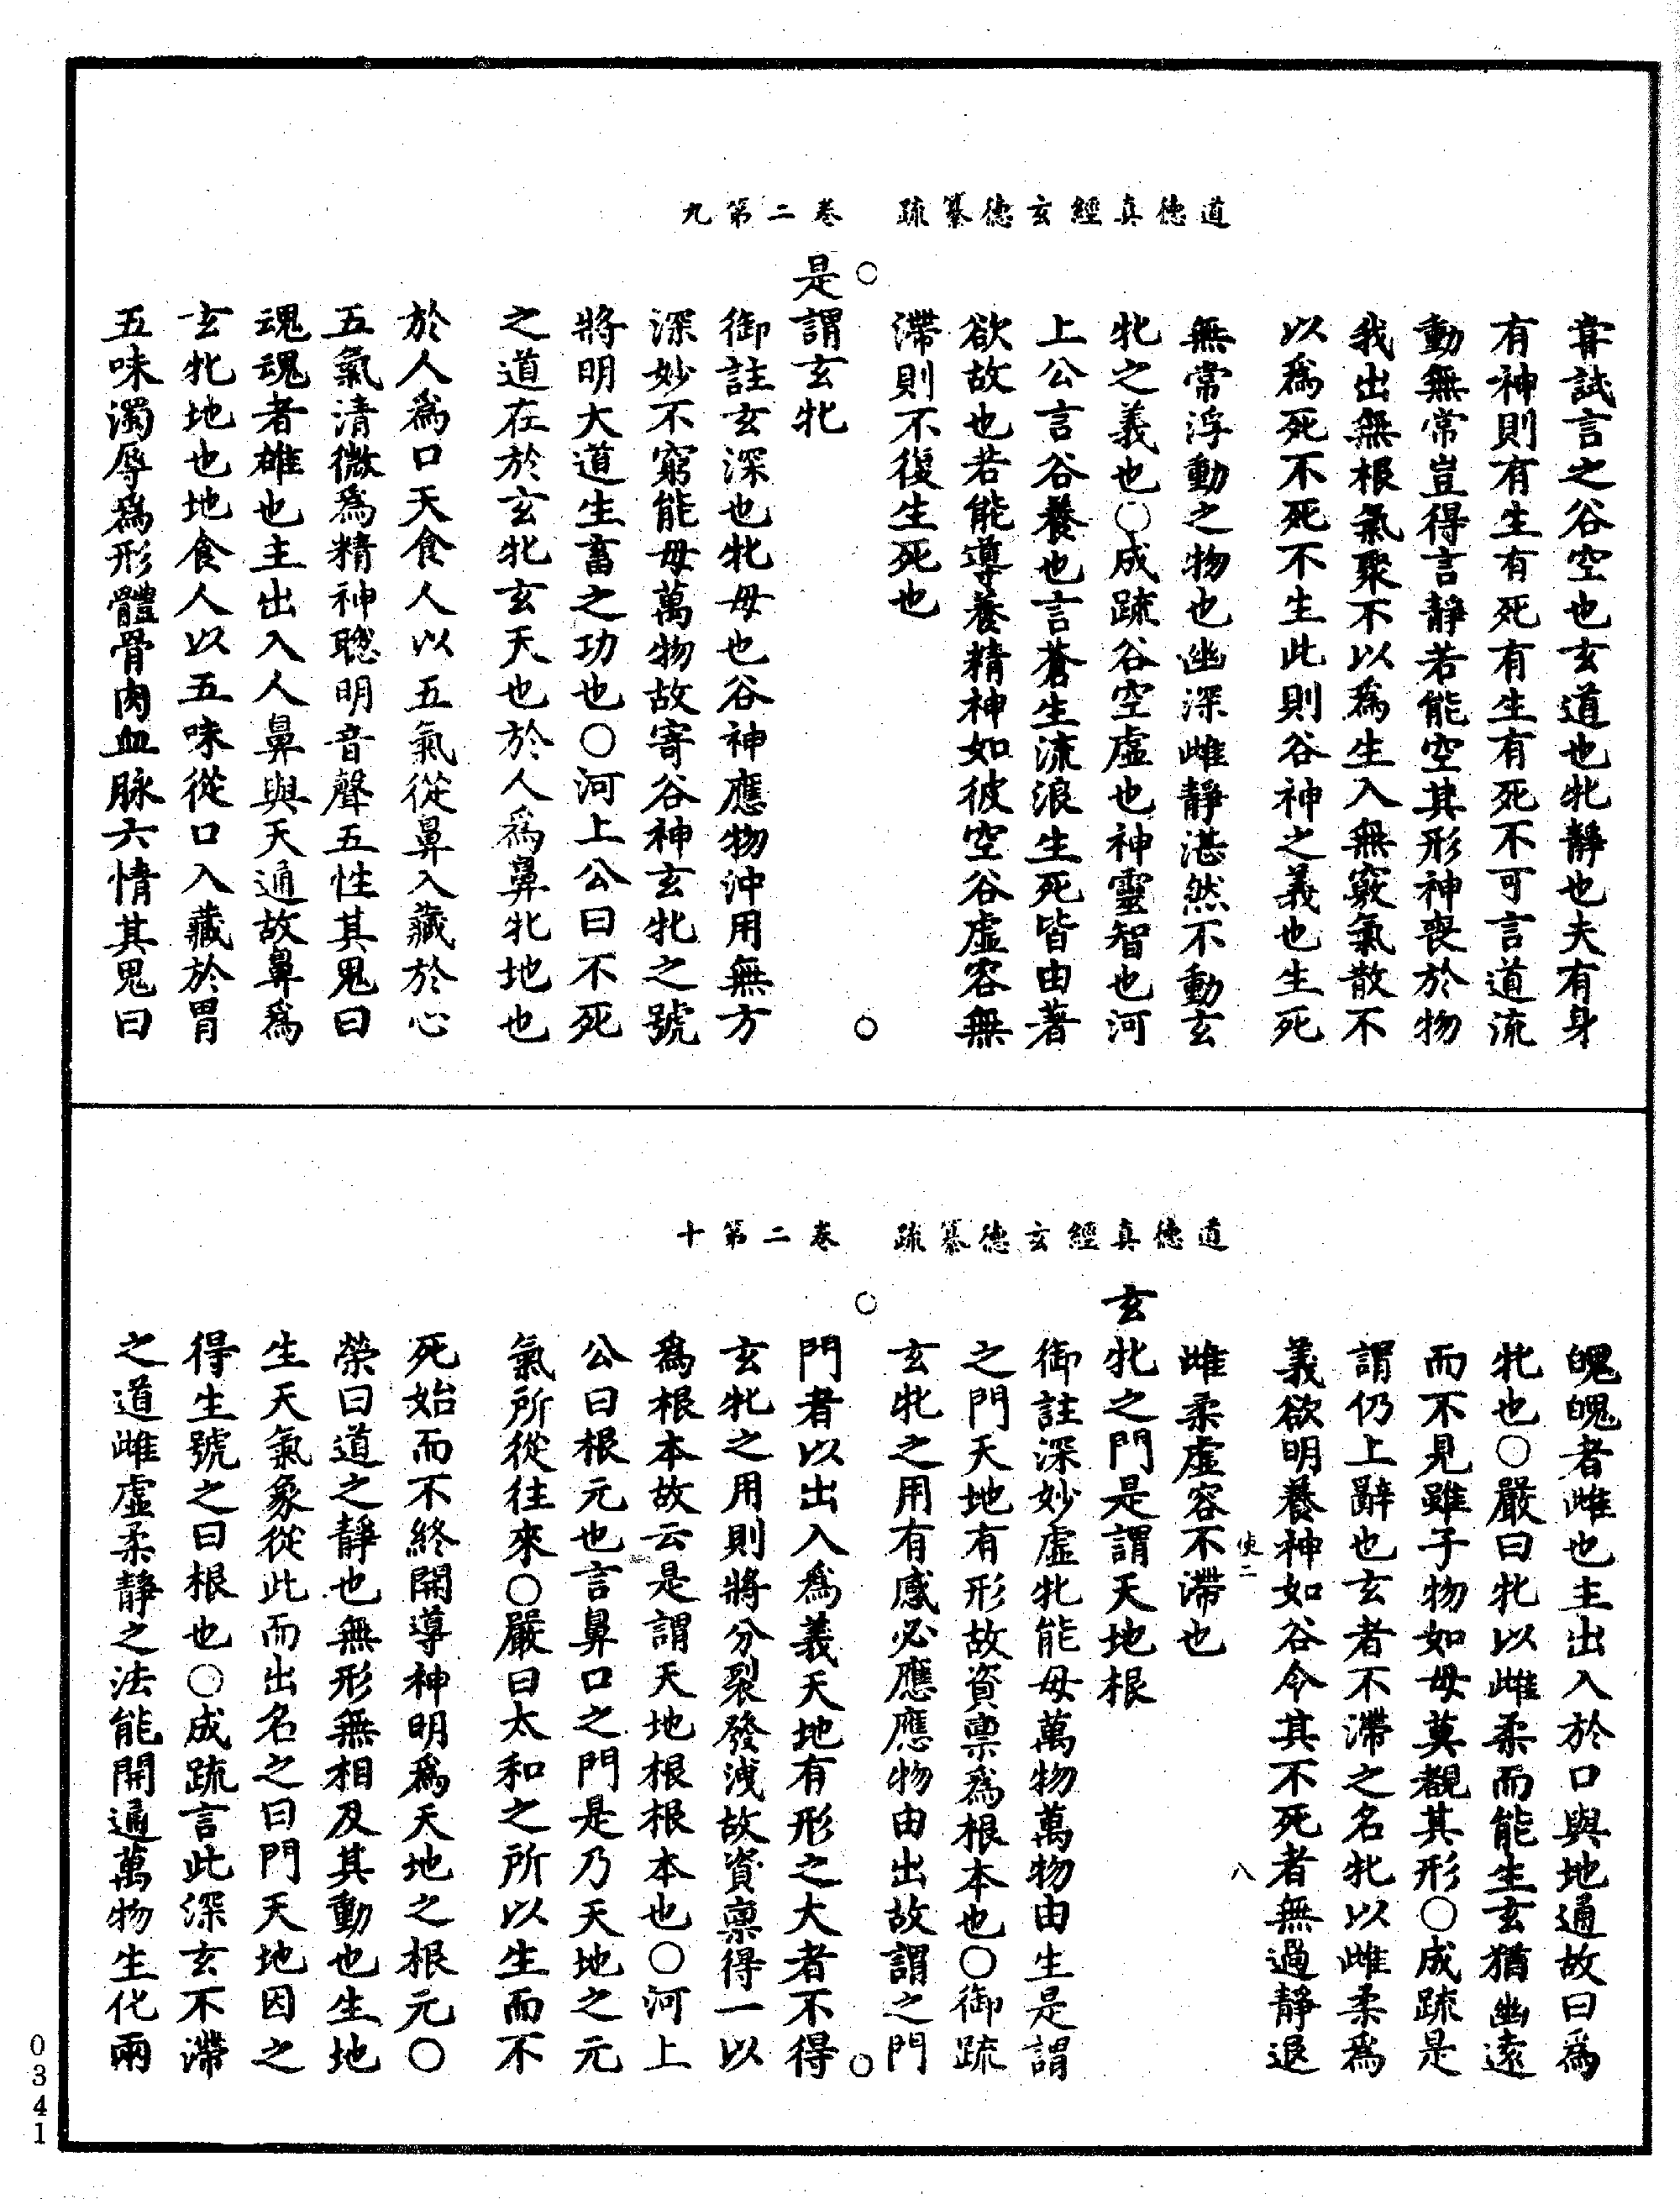 道德真經玄德纂疏　卷二第九
甞試言之谷空也玄道也牝靜也夫有身
有神則有生有死有生有死不可言道流
動無常豈得言靜若能空其形神喪於物
我出無根氣聚不以爲生入無竅氣散不
以爲死不死不生此則谷神之義也生死
無常浮動之物也幽深雌靜湛然不動玄
牝之義也○成疏谷空虛也神靈智也河
上公言谷養也言蒼生流浪生死皆由著
欲故也若能導養精神如彼空谷虛容無
滯則不復生死也
是謂玄牝
御註玄深也牝母也谷神應物沖用無方
深妙不窮能母萬物故寄谷神玄牝之號
將明大道生畜之功也○河上公曰不死
之道在於玄牝玄天也於人爲鼻牝地也
於人爲口天食人以五氣從鼻入藏於心
五氣清微爲精神聰明音聲五性其鬼曰
魂魂者雄也主出入人鼻與天通故鼻爲
玄牝地也地食人以五味從口入藏於胃
五味濁辱爲形體骨肉血脉六情其鬼曰
道德真經玄德纂疏　卷二第十
魄魄者雌也主出入於口與地通故曰爲
牝也○嚴曰牝以雌柔而能生玄猶幽遠
而不見雖子物如母莫覩其形○成疏是
謂仍上辭也玄者不滯之名牝以雌柔爲
義欲明養神如谷令其不死者無過靜退
使二　八
雌柔虛容不滯也
玄牝之門是謂天地根
御註深妙虛牝能母萬物萬物由生是謂
之門天地有形故資稟爲根本也○御疏
玄牝之用有感必應應物由出故謂之門
門者以出入爲義天地有形之大者不得
玄牝之用則將分裂發洩故資稟得一以
爲根本故云是謂天地根根本也○河上
公曰根元也言鼻口之門是乃天地之元
氣所從往來○嚴曰太和之所以生而不
死始而不終開導神明爲天地之根元○
榮曰道之靜也無形無相及其動也生地
生天氣象從此而出名之曰門天地因之
得生號之曰根也○成疏言此深玄不滯
之道雌虛柔靜之法能開通萬物生化兩
0341